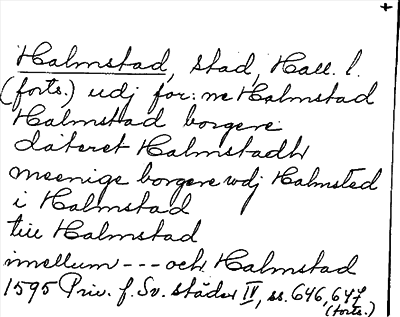 +
Halmstad, stad, Hall. l.
(forts.) udj för:ne Halmstad
Halmstad borgere
dateret Halmstadh
meenige borgere udj Halmsted
i Halmstad
till Halmstad
imellum --- och Halmstad
1595 Priv. f. Sv. städer IV, ss. 646, 647
(forts.)